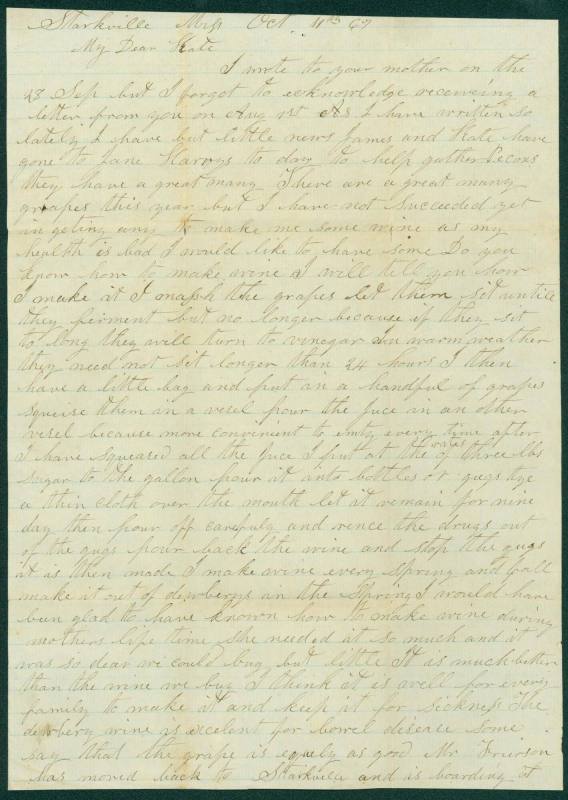 Starkville Miss Oct. 11th 67
My Dear Kate
I wrote to your mother on the
23 Sep but I forgot to acknowledge receiveing a
letter from you on Aug 1st As I have written so
lately I have but little news James and Kate have
gone to Jane Harvys to day to help gather Pecons
they have a great many There are a great many
grapes this year but I have not succeeded yet
in geting any to make me some wine as my
health is bad I would like to have some Do you
know how to make wine I will tell you how
I make it I mash the grapes let them sit untill
they ferment but no longer because if they sit
to long they will turn to vinegar In warm weather
they need not sit longer than 24 hours I then
have a little bag and put in a handful of grapes
squeise them in a vesel pour the juce in an other
vesel because more convinient to emty every time after
I have squeased all the juce I put at the rates of three lbs
sugar to the gallon pour it into bottles or gugs tye
a thin cloth over the mouth let it remain for nine
day then pour off carefuly and rence the drugs out
of the gugs pour back the wine and stop the gugs
it is then made I make wine every spring and fall
make it out of dewberys in the Spring I would have
been glad to have known how to make wine during
mothers life time she needed it so much and it
was so dear we could buy but little It is much better
than the wine we buy I think it is well for every
family to make it and keep it for sickness The
dewbery wine is excelent for bowel disease some
say that the grape is equely as good Mr Frierson
has moved back to Starkville and is boarding at